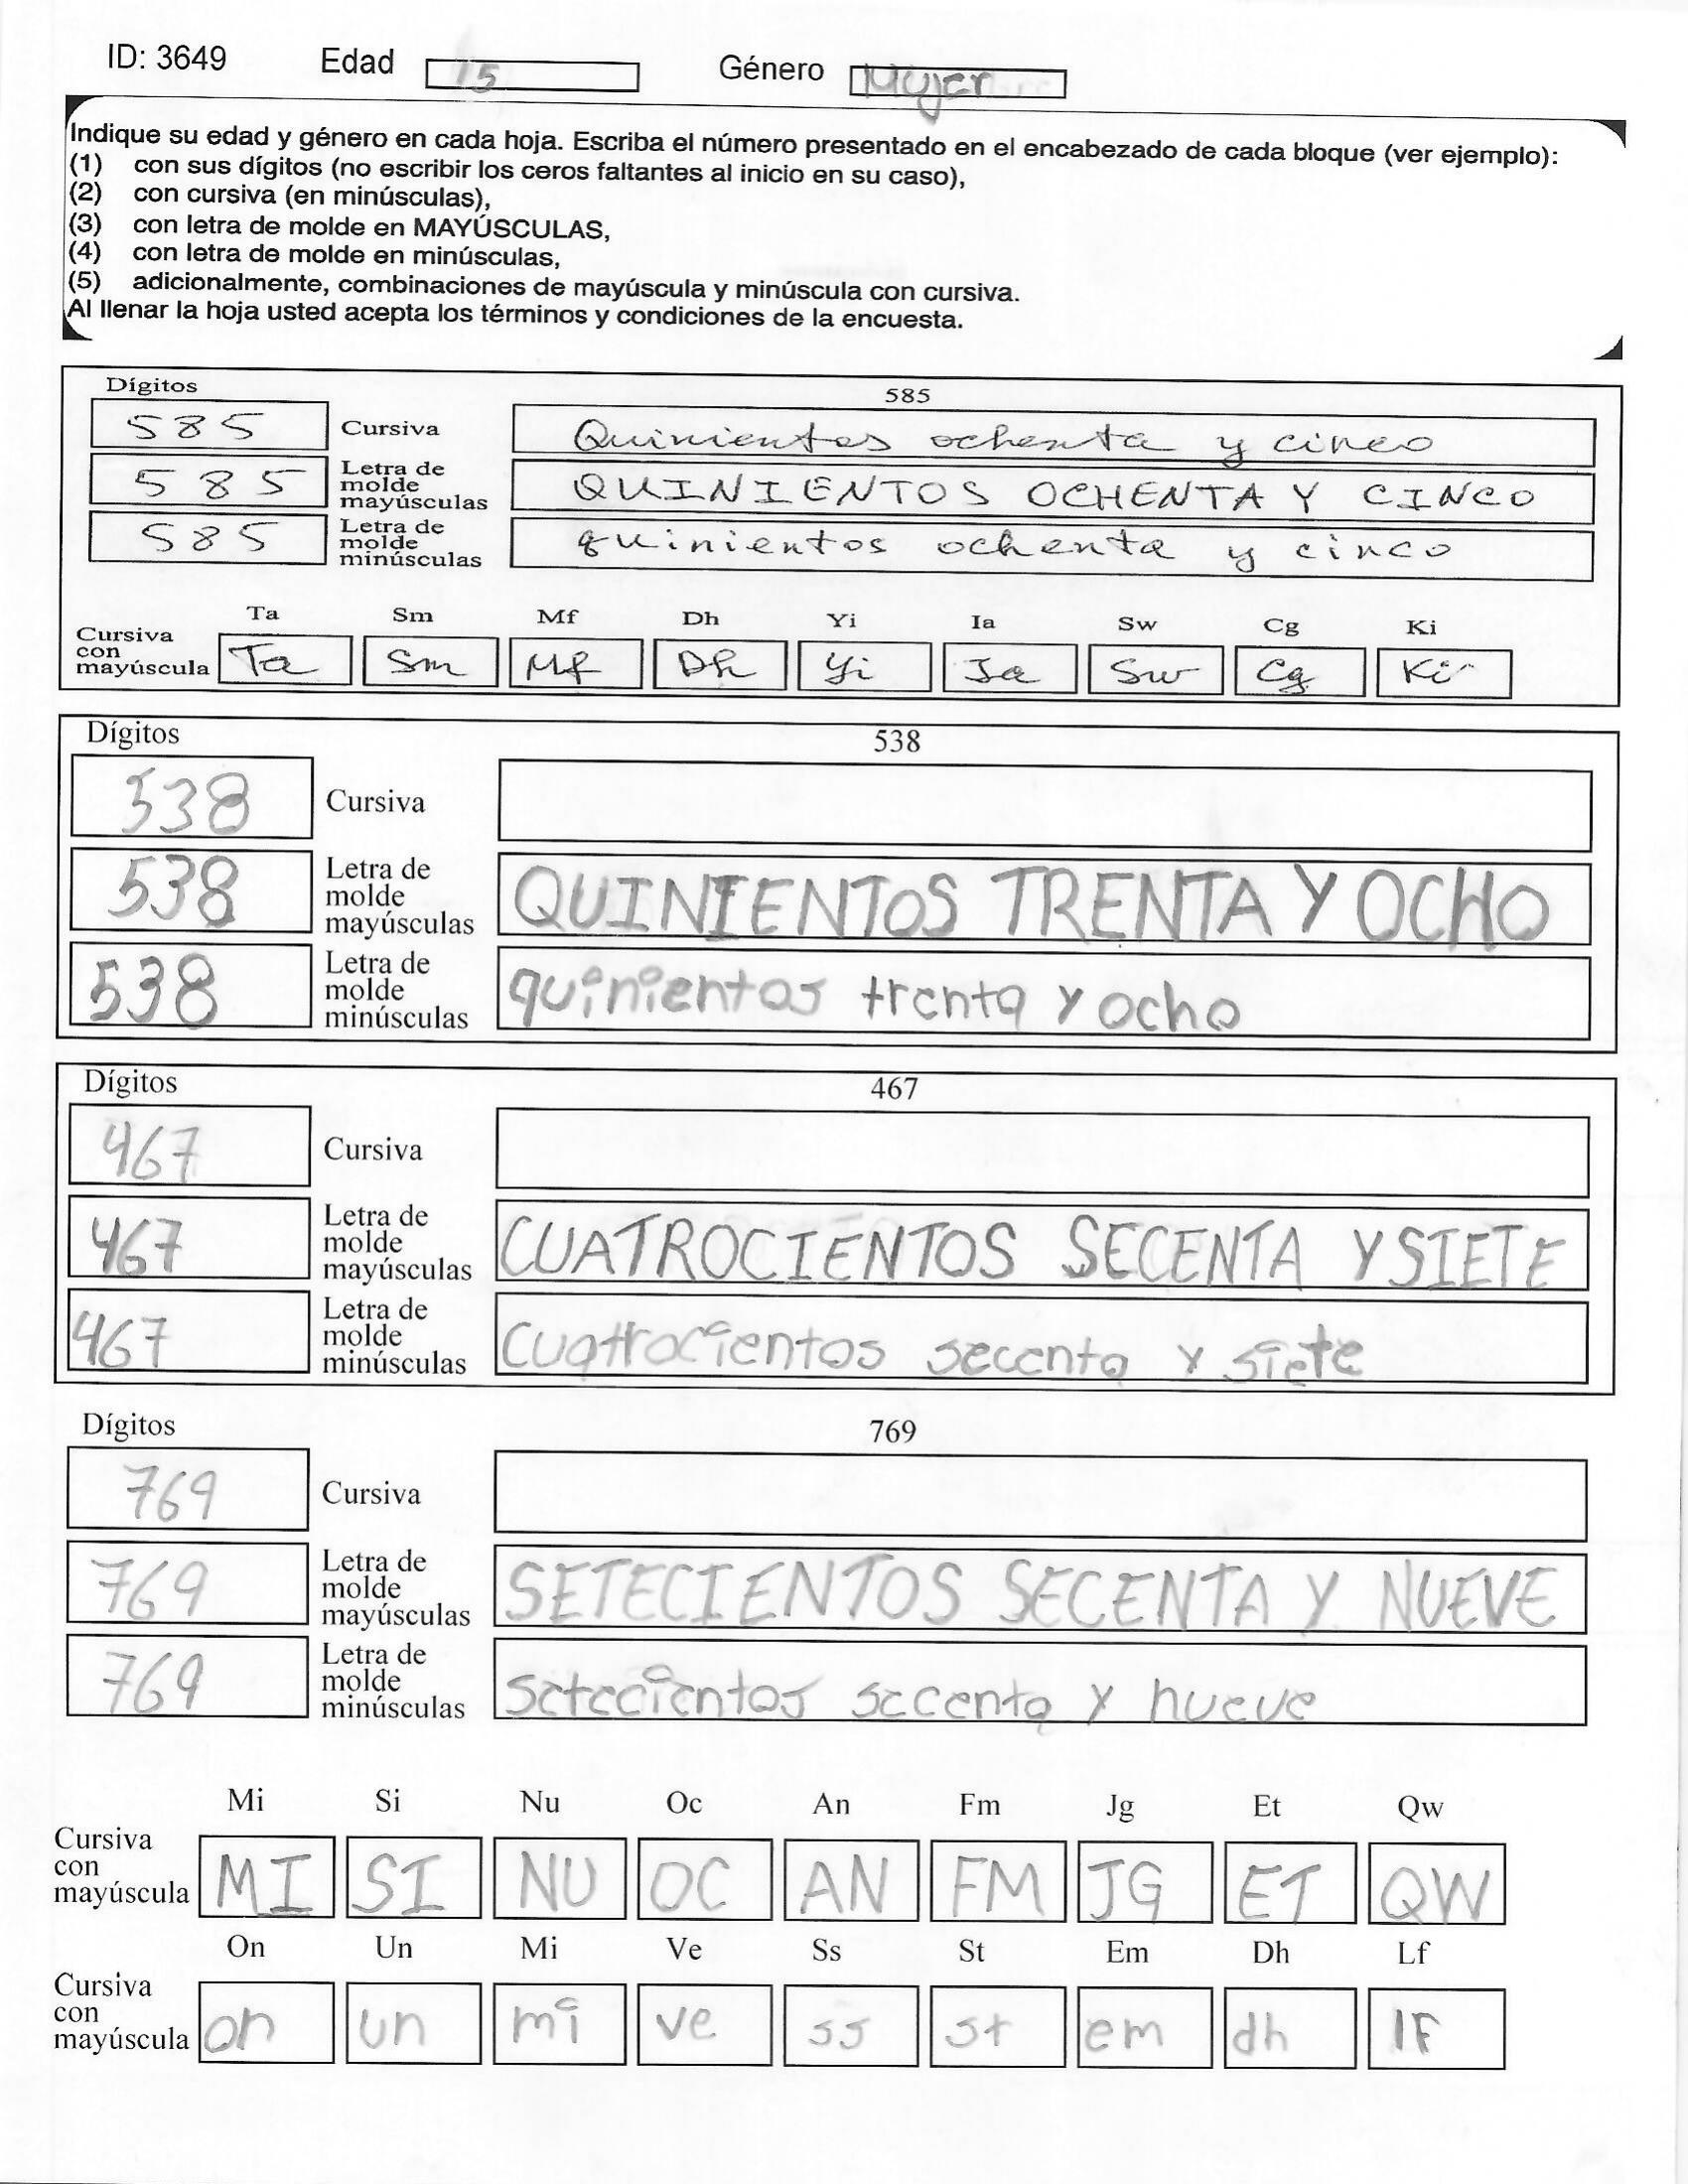 ID: 3649 Edad 15 Género Mujer
Indique su edad y género en cada hoja. Escriba el número presentado en el encabezado de cada bloque (ver ejemplo):
(1) con sus dígitos (no escribir los ceros faltantes al inicio en su caso),
(2) con cursiva (en minúsculas),
(3) con letra de molde en MAYÚSCULAS,
(4) con letra de molde en minúsculas,
(5) adicionalmente, combinaciones de mayúscula y minúscula con cursiva.
Al llenar la hoja usted acepta los términos y condiciones de la encuesta.
Dígitos 585
585 Cursiva Quinientos ochenta y cinco
585 Letra de molde mayúsculas QUINIENTOS OCHENTA Y CINCO
585 Letra de molde minúsculas quinientos ochenta y cinco
Ta Sm Mf Dh Yi Ia Sw Cg Ki
Cursiva con mayúscula Ta Sm Mf Dh Yi Ia Sw Cg Ki
Dígitos 538
538 Cursiva
538 Letra de molde mayúsculas QUINIENTOS TRENTA Y OCHO
538 Letra de molde minúsculas quinientos trenta y ocho
Dígitos 467
467 Cursiva
467 Letra de molde mayúsculas CUATROCIENTOS SECENTA Y SIETE
467 Letra de molde minúsculas cuatrocientos secenta y siete
Dígitos 769
769 Cursiva
769 Letra de molde mayúsculas SETECIENTOS SECENTA Y NUEVE
769 Letra de molde minúsculas setecientos secenta y nueve
Mi Si Nu Oc An Fm Jg Et Qw
Cursiva con mayúscula MI SI NU OC AN FM JG ET QW
On Un Mi Ve Ss St Em Dh Lf
Cursiva con mayúscula on un mi ve ss st em dh lF